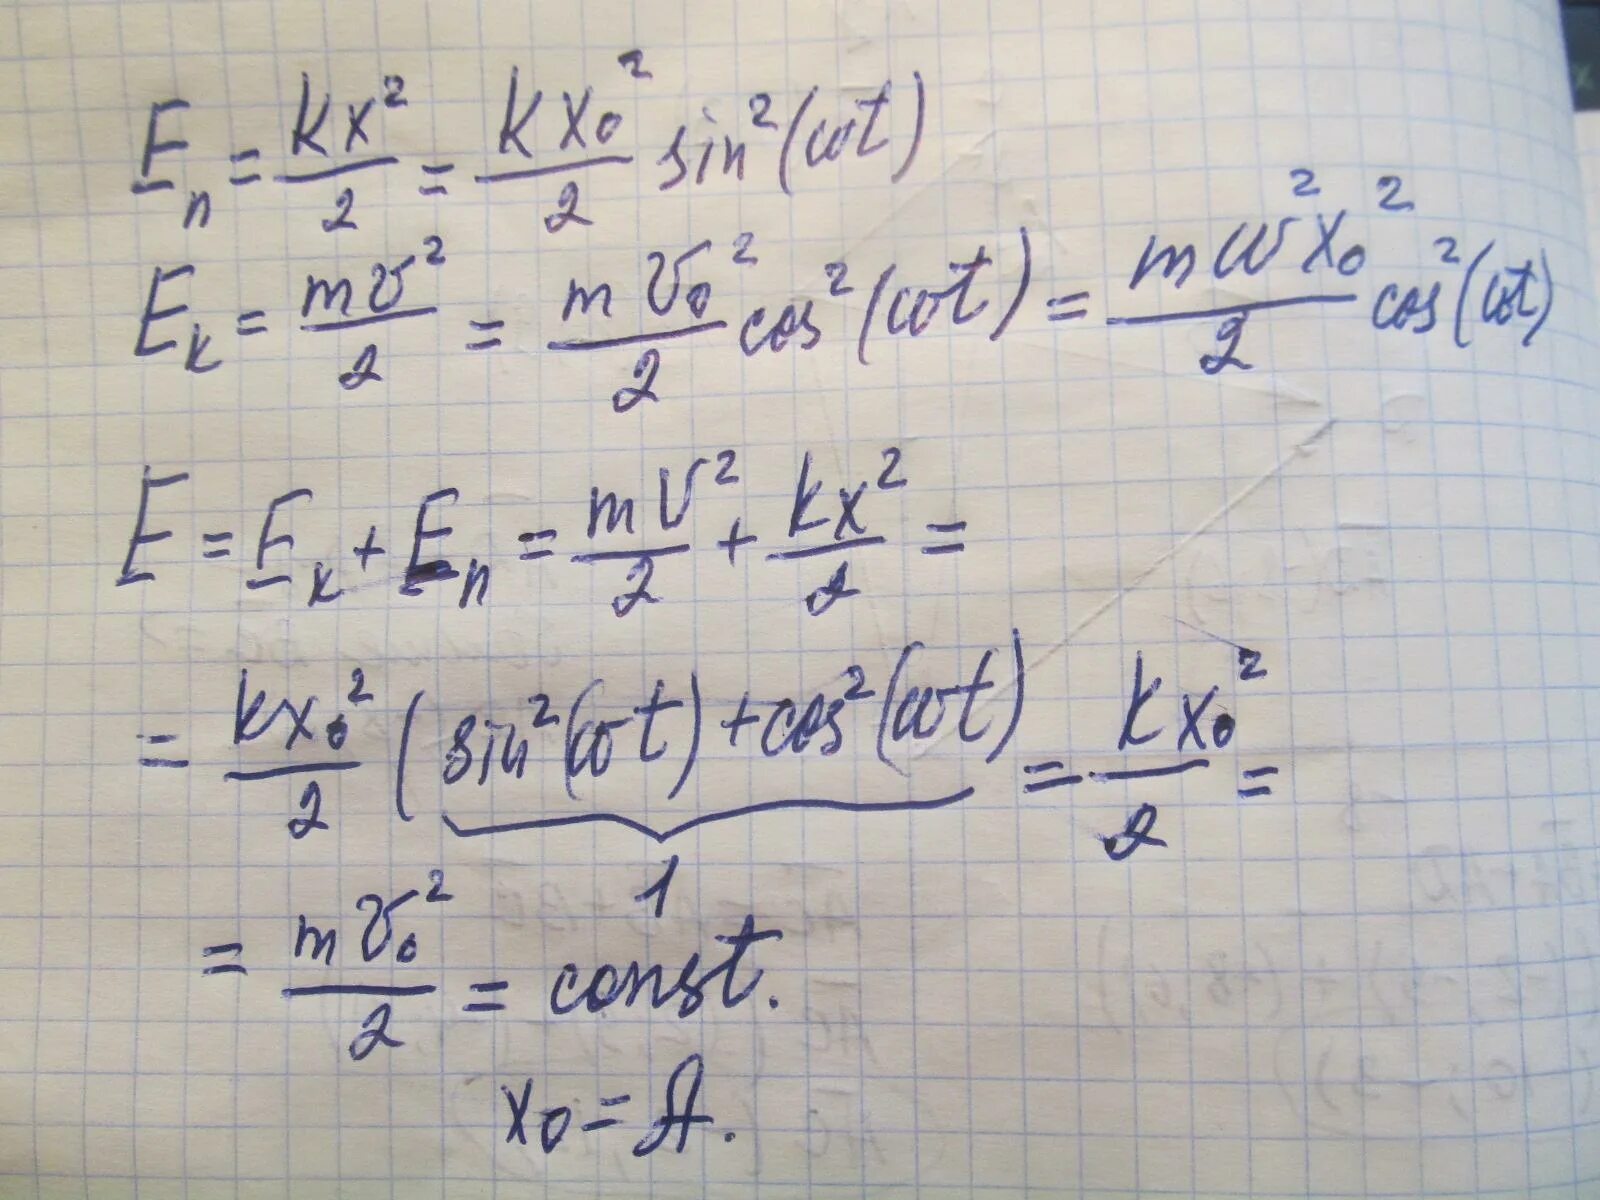 Eп = kx²/2 = kx₀²/2 sin²(ωt)
Eк = mv²/2 = mv₀²/2 cos²(ωt) = mω²x₀²/2 cos²(ωt)
E = Eк + Eп = mv²/2 + kx²/2 =
= kx₀²/2 (sin²(ωt) + cos²(ωt) = kx₀²/2 =
1
= mv₀²/2 = const.
x₀ = A.